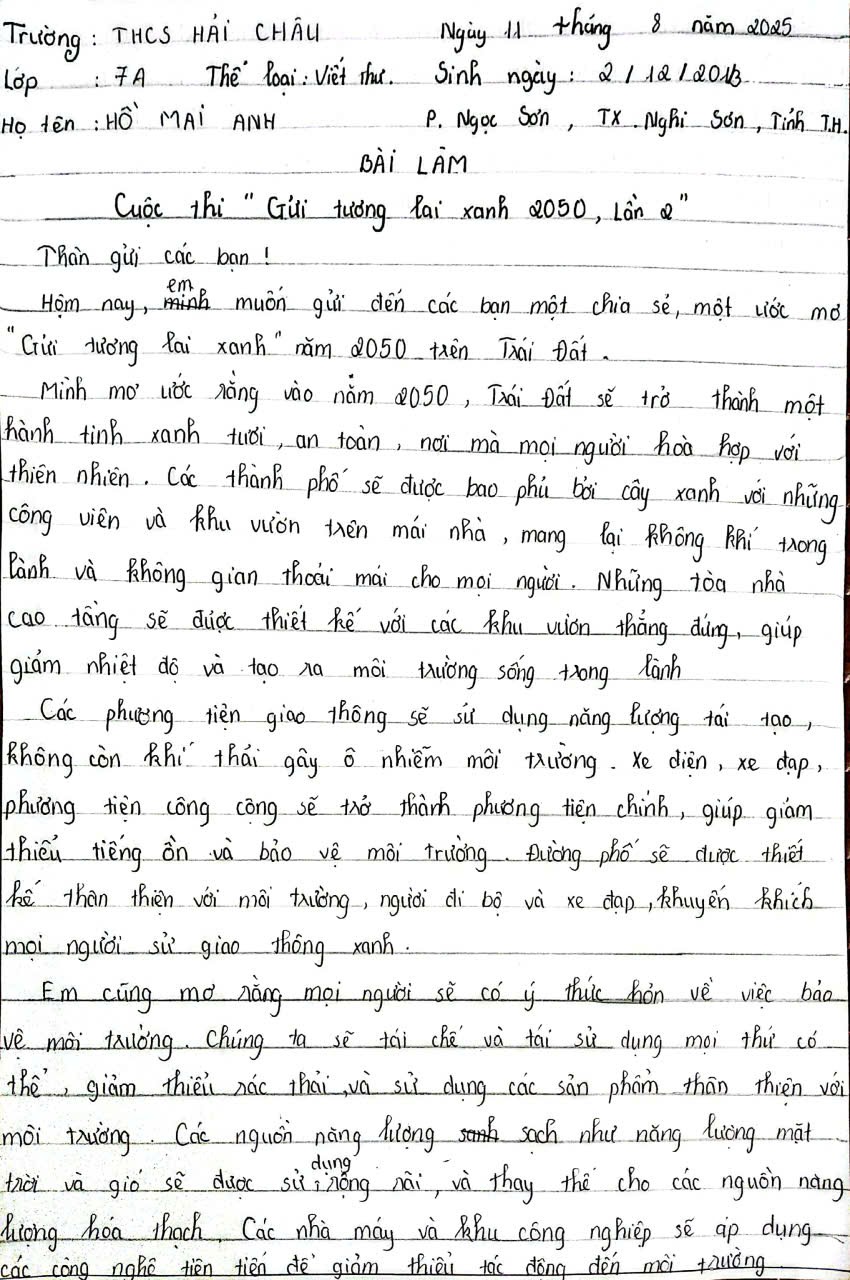 Trường : THCS HẢI CHÂU Ngày 11 tháng 8 năm 2025
Lớp : 7A Thể loại : Viết thư. Sinh ngày : 2 / 12 / 2013
Họ tên : HỒ MAI ANH P. Ngọc Sơn , TX . Nghi Sơn , Tỉnh T.H.
BÀI LÀM
Cuộc thi " Gửi tương lai xanh 2050, Lần 2"
Thân gửi các bạn !
Hôm nay, em muốn gửi đến các bạn một chia sẻ, một ước mơ
"Gửi tương lai xanh" năm 2050 trên Trái Đất .
Mình mơ ước rằng vào năm 2050 , Trái Đất sẽ trở thành một
hành tinh xanh tươi , an toàn , nơi mà mọi người hoà hợp với
thiên nhiên . Các thành phố sẽ được bao phủ bởi cây xanh với những
công viên và khu vườn trên mái nhà , mang lại không khí trong
lành và không gian thoải mái cho mọi người . Những tòa nhà
cao tầng sẽ được thiết kế với các khu vườn thẳng đứng, giúp
giảm nhiệt độ và tạo ra môi trường sống trong lành
Các phương tiện giao thông sẽ sử dụng năng lượng tái tạo ,
không còn khí thải gây ô nhiễm môi trường . Xe điện , xe đạp ,
phương tiện công cộng sẽ trở thành phương tiện chính , giúp giảm
thiểu tiếng ồn và bảo vệ môi trường . Đường phố sẽ được thiết
kế thân thiện với môi trường , người đi bộ và xe đạp , khuyến khích
mọi người sử giao thông xanh .
Em cũng mơ rằng mọi người sẽ có ý thức hơn về việc bảo
vệ môi trường . Chúng ta sẽ tái chế và tái sử dụng mọi thứ có
thể , giảm thiểu rác thải , và sử dụng các sản phẩm thân thiện với
môi trường . Các nguồn năng lượng sạch như năng lượng mặt
trời và gió sẽ được sử dụng rộng rãi , và thay thế cho các nguồn năng
lượng hóa thạch . Các nhà máy và khu công nghiệp sẽ áp dụng
các công nghệ tiên tiến để giảm thiểu tác động đến môi trường